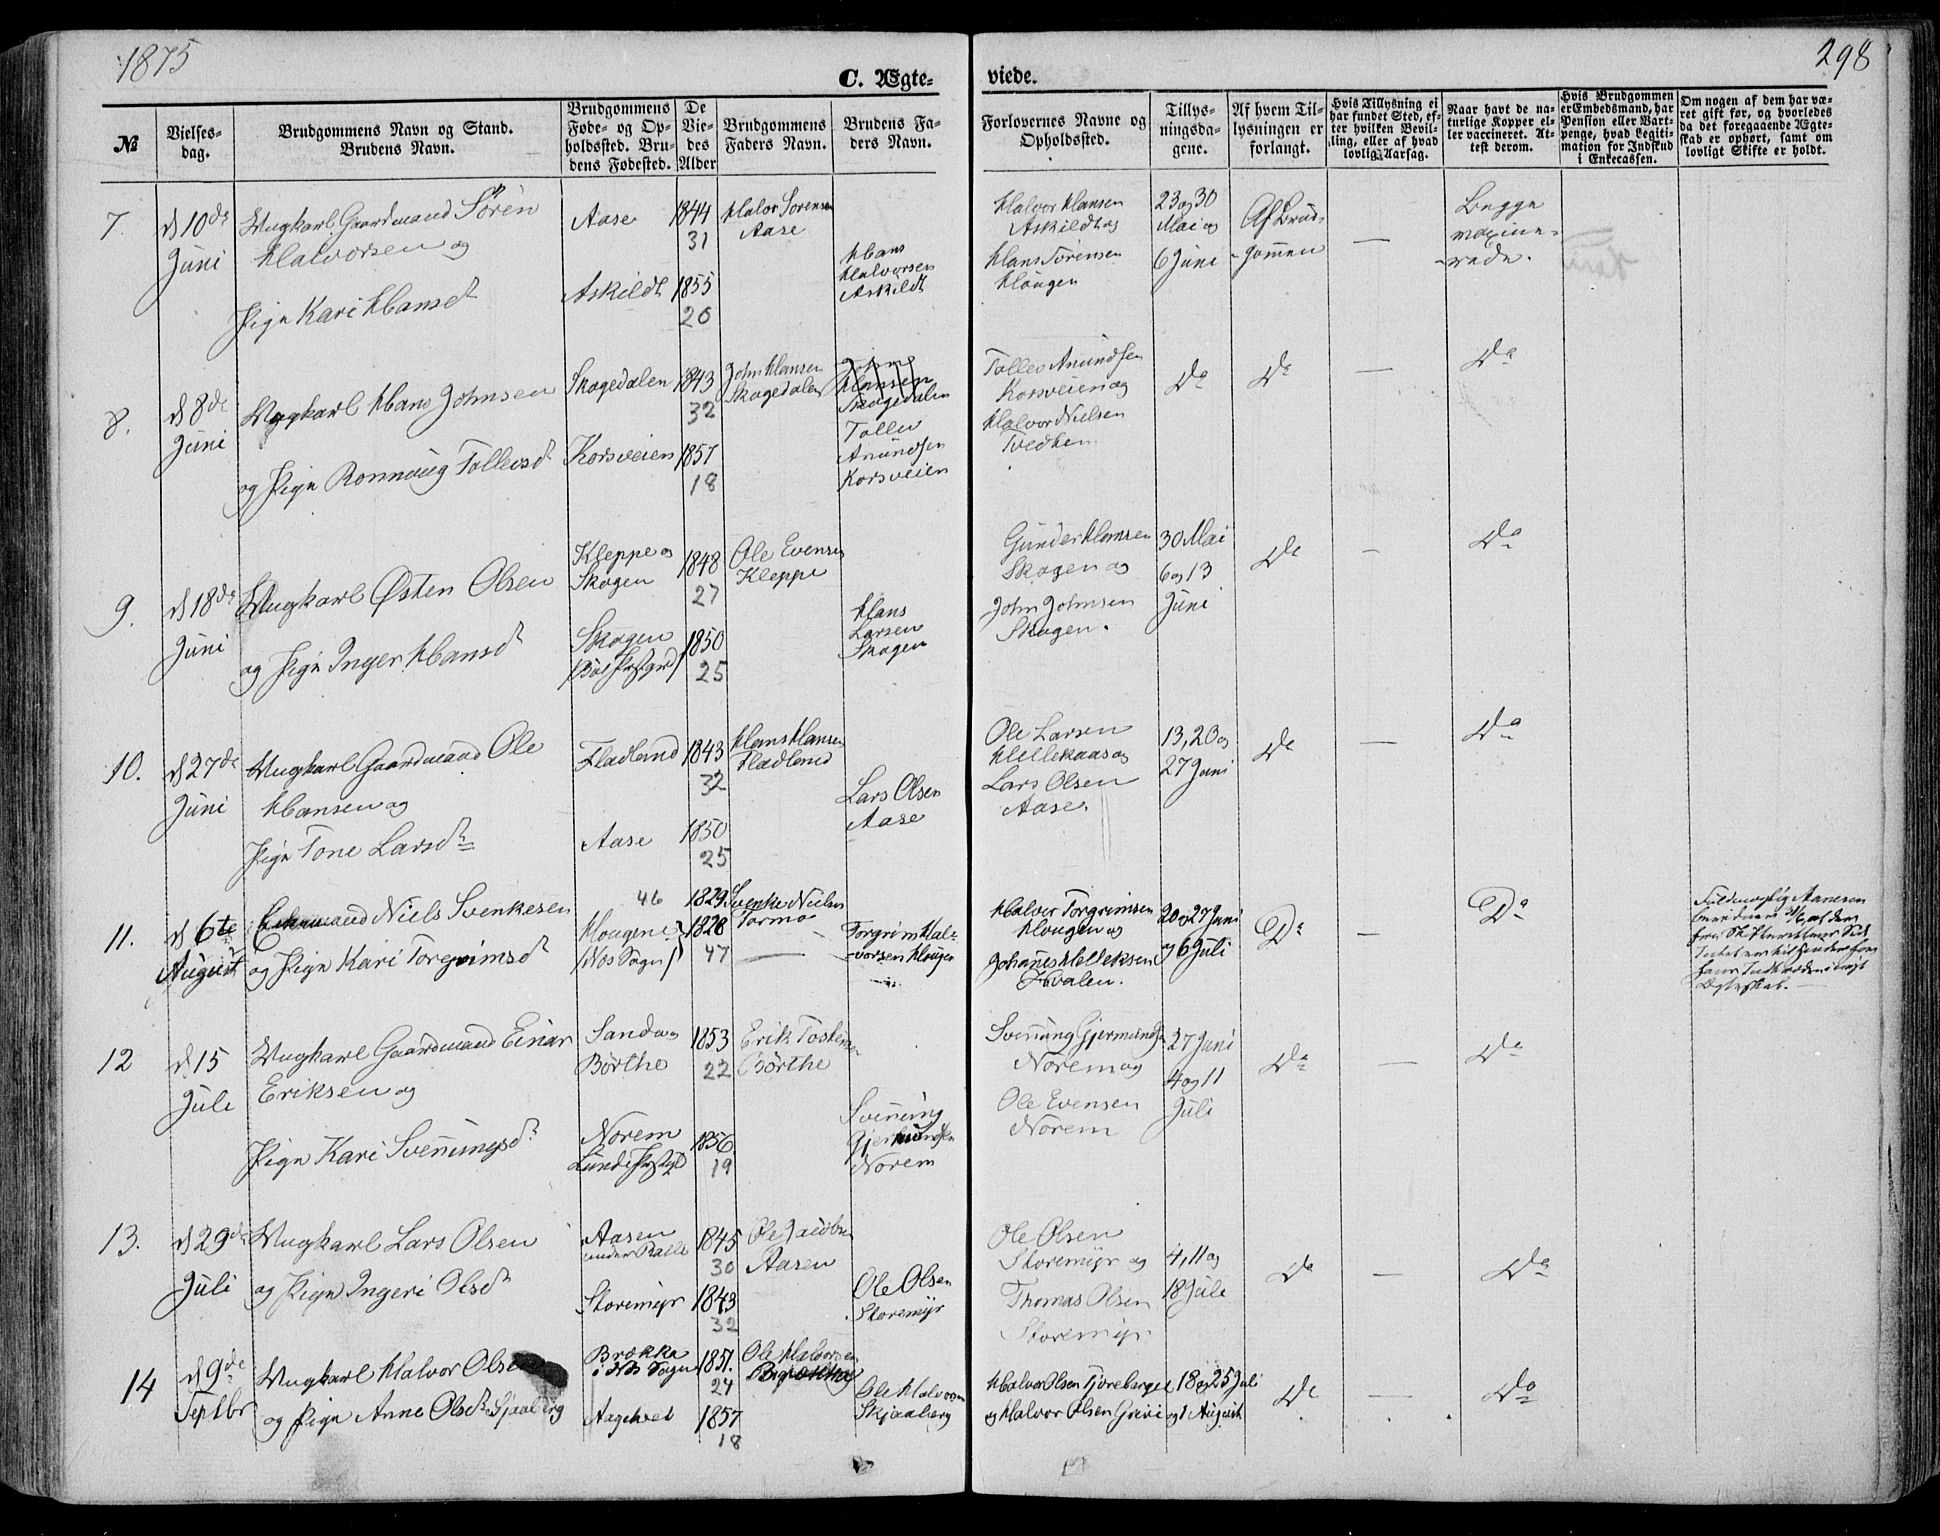 1875
298
C. Ægte=
viede.
№
Vielses-
dag.
Brudgommens Navn og Stand.
Brudens Navn.
Brudgommens
Føde- og Op-
holdssted. Bru-
dens Fødested.
De
Vie-
des
Alder
Brudgommens
Faders Navn.
Brudens Fa-
ders Navn.
Forlovernes Navne og
Opholdssted.
Tillys-
ningsda-
gene.
Af hvem Til-
lysningen er
forlangt.
Hvis Tillysning ei
har fundet Sted, ef-
ter hvilken Bevil-
ling, eller af hvad
lovlig Aarsag.
Naar havt de na-
turlige Kopper el-
ler vaccineret. At-
test derom.
Hvis Brudgommen
er Embedsmand, har
Pension eller Vart-
penge, hvad Legiti-
mation for Indskud
i Enkecassen.
Om nogen af dem har væ-
ret gift før, og hvorledes
da det foregaaende Ægte-
skab er ophørt, samt om
lovligt Skifte er holdt.
7.
d 10de
Juni
Ungkarl Gaardmand Søren
Halvorsen og
Pige Kari Hansd
Aase
Askildt
1844
31
1855
20
Halvor Sorensen
Aase
Hans
Halvorsen
Askildt
Halvor Hansen
Askildt og
Hans Sørensen
Hougen
23 og 30
Mai og
6 Juni
Af Brud-
gommen
—
Begge
vaccine-
rede.
8.
d 8de
Juni
Ungkarl Hans Johnsen
og Pige Ronnoug Tollevsd
Skogedalen
Korsveien
1843
32
1857
18
John Hansen
Skogedalen
John
Hansen
Skogedalen
Tollev
Anundsen
Korsveien
Tollev Anundsen
Korsveien og
Halvor Nielsen
Tvedten
Do
Do
—
Do
9.
d 18de
Juni
Ungkarl Østen Olsen
og Pige Inger Hansd
Kleppe og
Skogen
Skogen
1848
27
1850
25
Ole Evensen
Kleppe
Hans
Larsen
Skogen
Gunder Hansen
Skogen og
John Johnsen
Skogen.
30 Mai
6 og 13
Juni
Do
—
Do
10.
d 27de
Juni
Ungkarl Gaardmand Ole
Hansen og
Pige Tone Larsd
Fladland
Aase
1843
32
1850
25
Hans Hansen
Fladland
Lars Olsen
Aase
Ole Larsen
Hellekaas og
Lars Olsen
Aase.
13, 20 og
27 Juni
Do
—
Do
11.
d 6te
August
Enkemand Niels Svenkesen
og Pige Kari Torgrimsd
46
Hougene
1829
1828
47
Svenke Nielsen
—
Torgrim Hal-
vorsen Hougen
Halvor Torgrimsen
Hougen og
Johanes Helleksen
20 og 27 Juni
og 6 Juli
Do
—
Do
Ægteskab.
12
d 15
Juli
Ungkarl Gaardmand Einar
Eriksen og
Pige Kari Svenungsd
Sanda og
Børthe
Norem
1853
22
1856
19
Erik Tostensen
Børthe
Svenung
Gjermundsen
Norem
Svenung Gjermundsen
Norem og
Ole Evensen
Norem
27 Juni
4 og 11
Juli
Do
—
Do
13.
d 29de
Juli
Ungkarl Lars Olsen
og Pige Ingeri Olsd
Aasen
Storemyr
1845
30
1843
32
Ole Jacobsen
Aasen
Ole Olsen
Storemyr
Ole Olsen
Storemyr og
Thomas Olsen
Storemyr.
4, 11 og
18 Juli
Do
—
Do
14
d 9de
Septbr
Ungkarl Halvor Olsen
og Pige Anne Olsd Skjaaberg
Brækka
i Næs Sogn
Aagetvet
1851.
24
1857
18
Ole Halvorsen
Brækka
Ole Halvorsen
Skjaaberg
Halvor Olsen
og Halvor Olsen
18 og 25 Juli
og 1 August
Do
—
Do